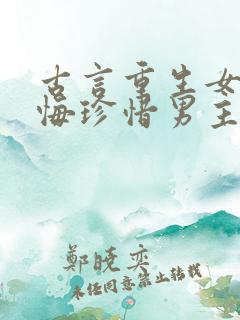 古言重生女
悔珍惜男主
鄭曉奕
未经同意禁止转载